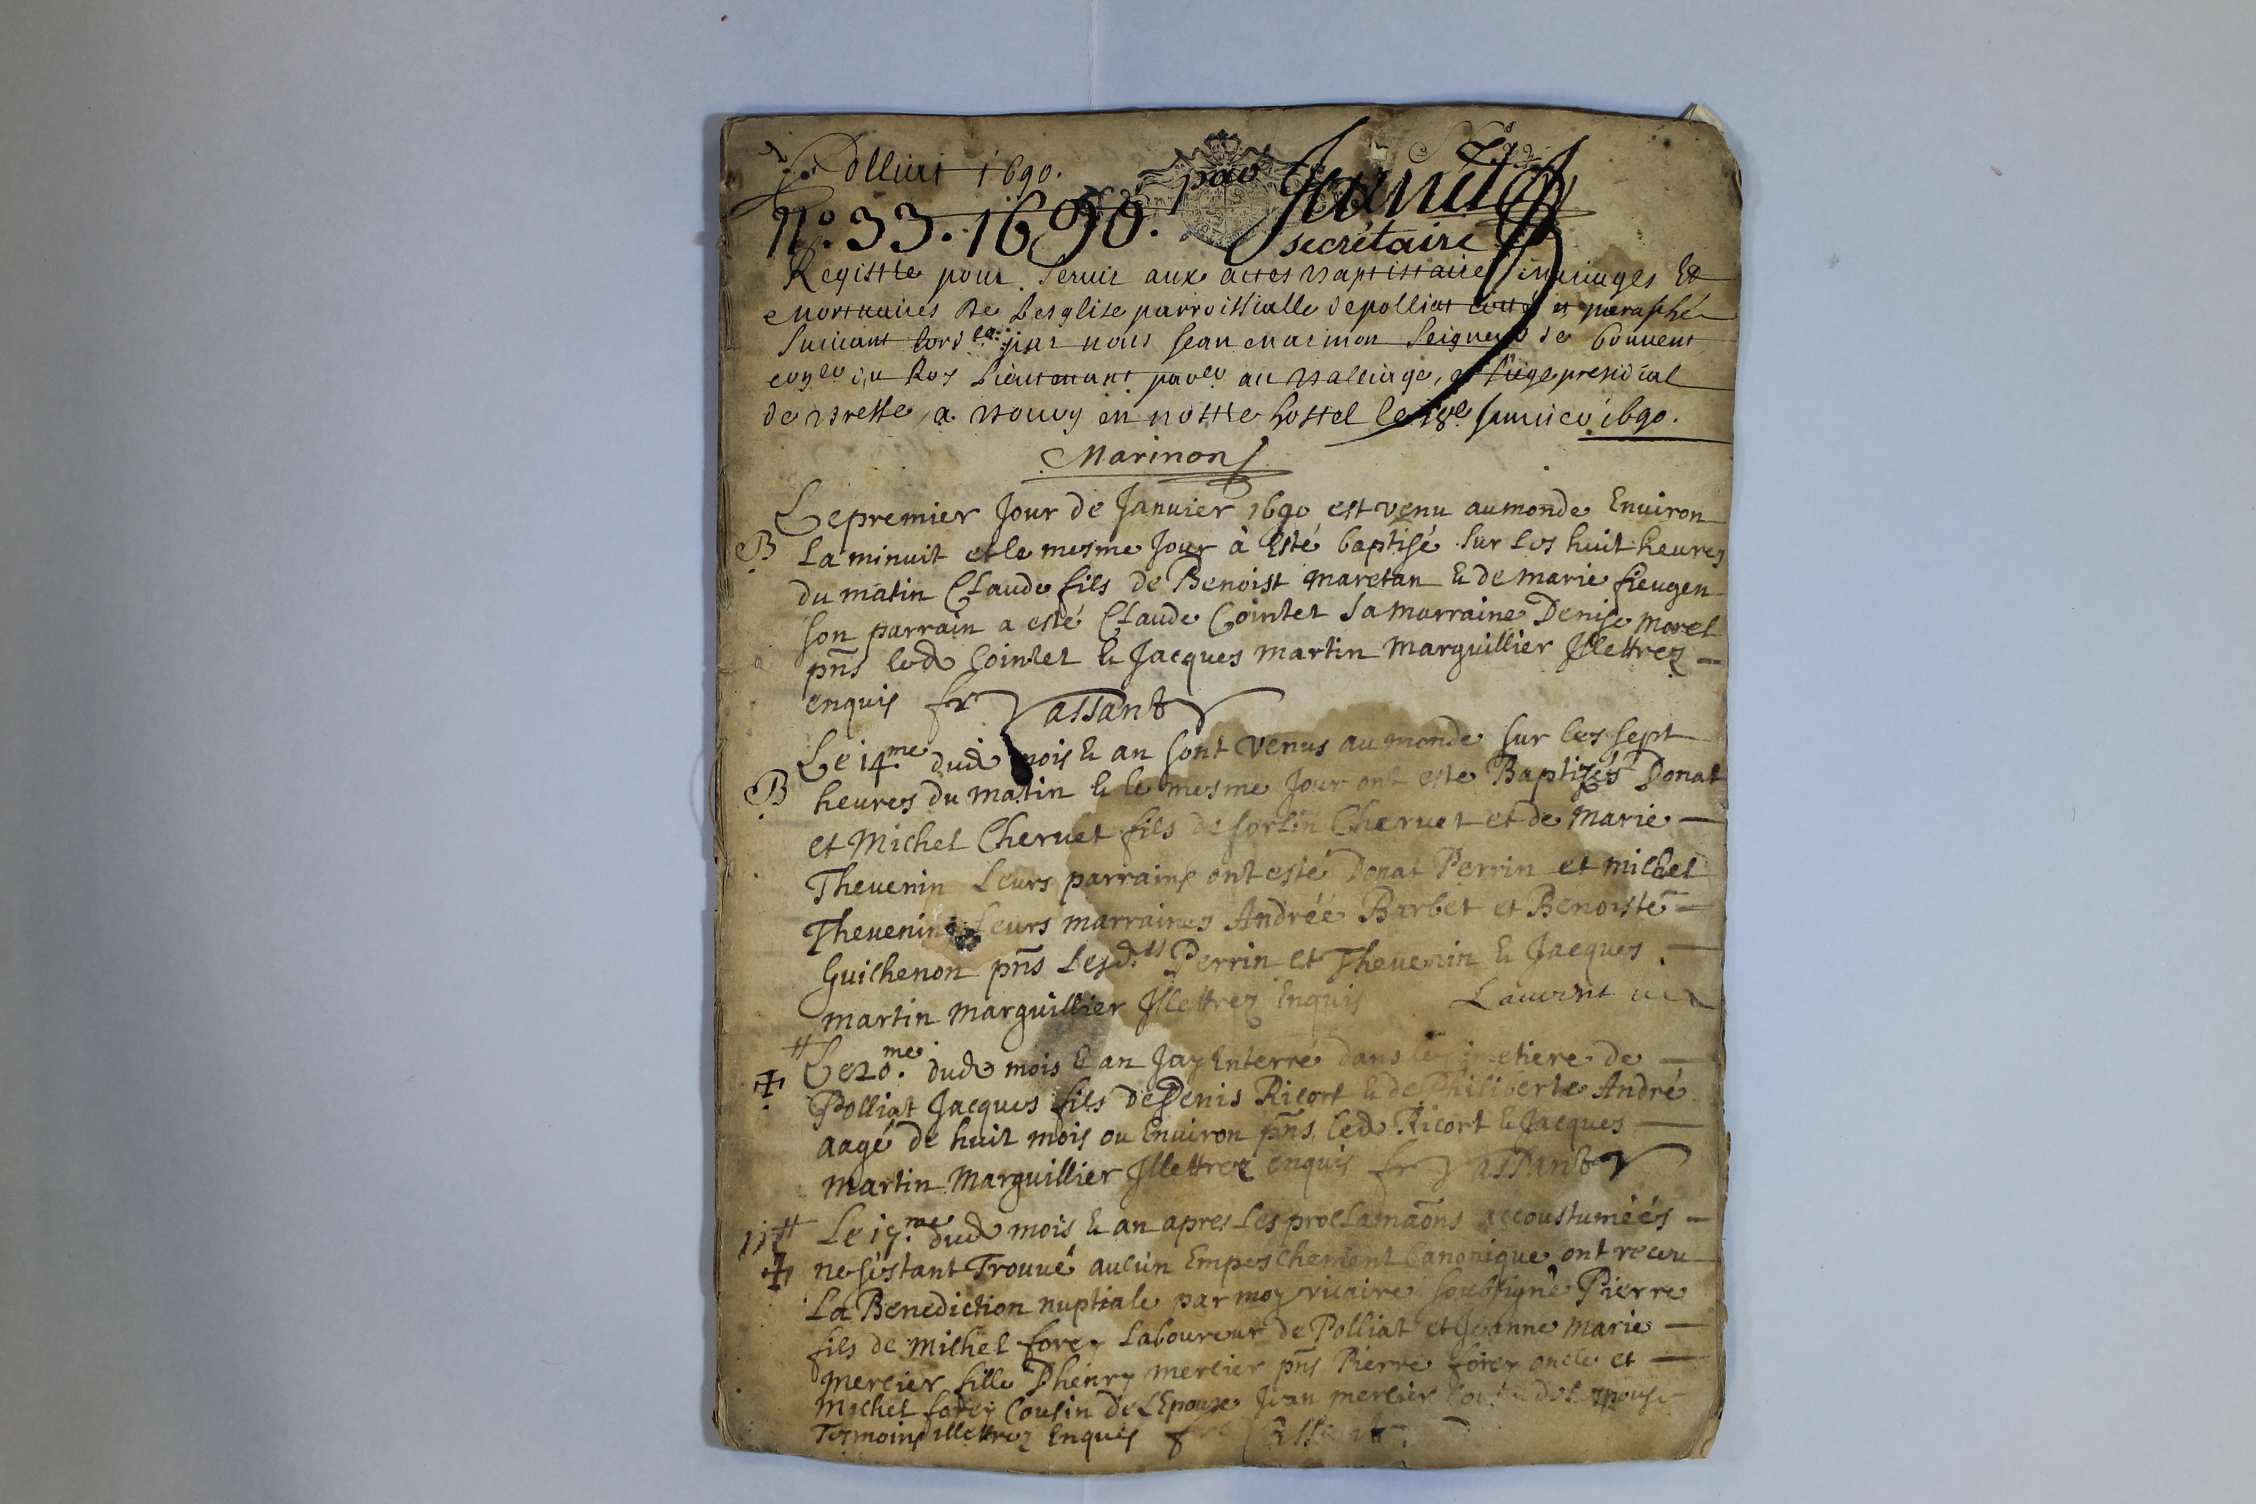 Polliat 1690.
par Jauni
n.o 33. 1690.
secrétaire
Registre pour Servir aux actes Baptistaires mariages Et
mortuaires de Lesglise parroissialle de polliat cotté et paraphé
Suivant lord.ce par nous Jean marinon Seigneur de bouvent
con.er du Roy Lieutenant par.er au Balliage, et Siege presidial
de Bresse, a Bourg en nostre hostel le 18.e Janvier 1690.
Marinon
Le premier Jour de Janvier 1690 est venu au monde Environ
B
La minuit et le mesme Jour à Esté baptisé Sur Les huit heures
du matin Claude fils de Benoist maretan & de marie fieugen
Son parrain a esté Claude Cointet Sa marraine Denise morel
pñs led Cointet & Jacques martin marguillier Jllettrez
enquis fr Vassant
Le 14.me dud mois & an sont venus au monde Sur les sept
B
heures du matin & le mesme Jour ont esté Baptizés Donat
et Michel Chervet fils de Sorlin Chervet et de Marie
Thevenin Leurs parrains ont esté Donat Perrin et michel
Thevenin Leurs marraines Andrée Barbet et Benoiste
Guichenon pñs Lesd.ts Perrin et Thevenin & Jacques
martin marguillier Jllettrez Enquis Laurent
Le 20.me dud mois & an Jay Enterré dans le Cimetiere de
Polliat Jacques fils de Denis Ricort & de Philiberte André
aagé de huit mois ou Environ pñs led Ricort & Jacques
martin Marguillier Jllettrez enquis fr Vassant
Le 17.me dud mois & an apres Les proclamaõns accoustumées
ne s'estant Trouvé aucun Empeschement Canonique ont receu
La Benediction nuptiale par moy vicaire Soubsigné Pierre
fils de Michel forey Laboureur de Polliat et Jeanne Marie
mercier fille Dhenry mercier pñs Pierre forey oncle et
Michel forey Cousin de LEpoux Jean mercier de Lespouse
Tesmoins illettrez Enquis